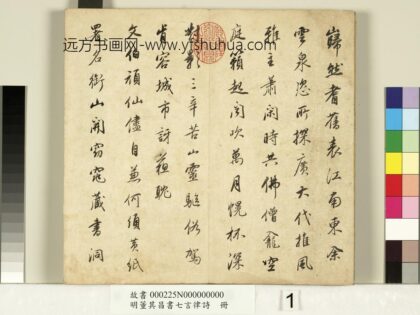 远方书画网-www.yfshuhua.com
巋然耆舊表江南東余
雲泉恣所探廣大代推風
雅主蕭閒時共佛僧龕空
庭籟起閣吹萬月幌杯深
對影三辛苦山靈驅俗駕
肯容城市訝蘇耽
文伯頑仙儘自兼何須黃紙
署名銜山開窈窕藏書洞
故書 000225N000000000
明董其昌書七言律詩 冊
1